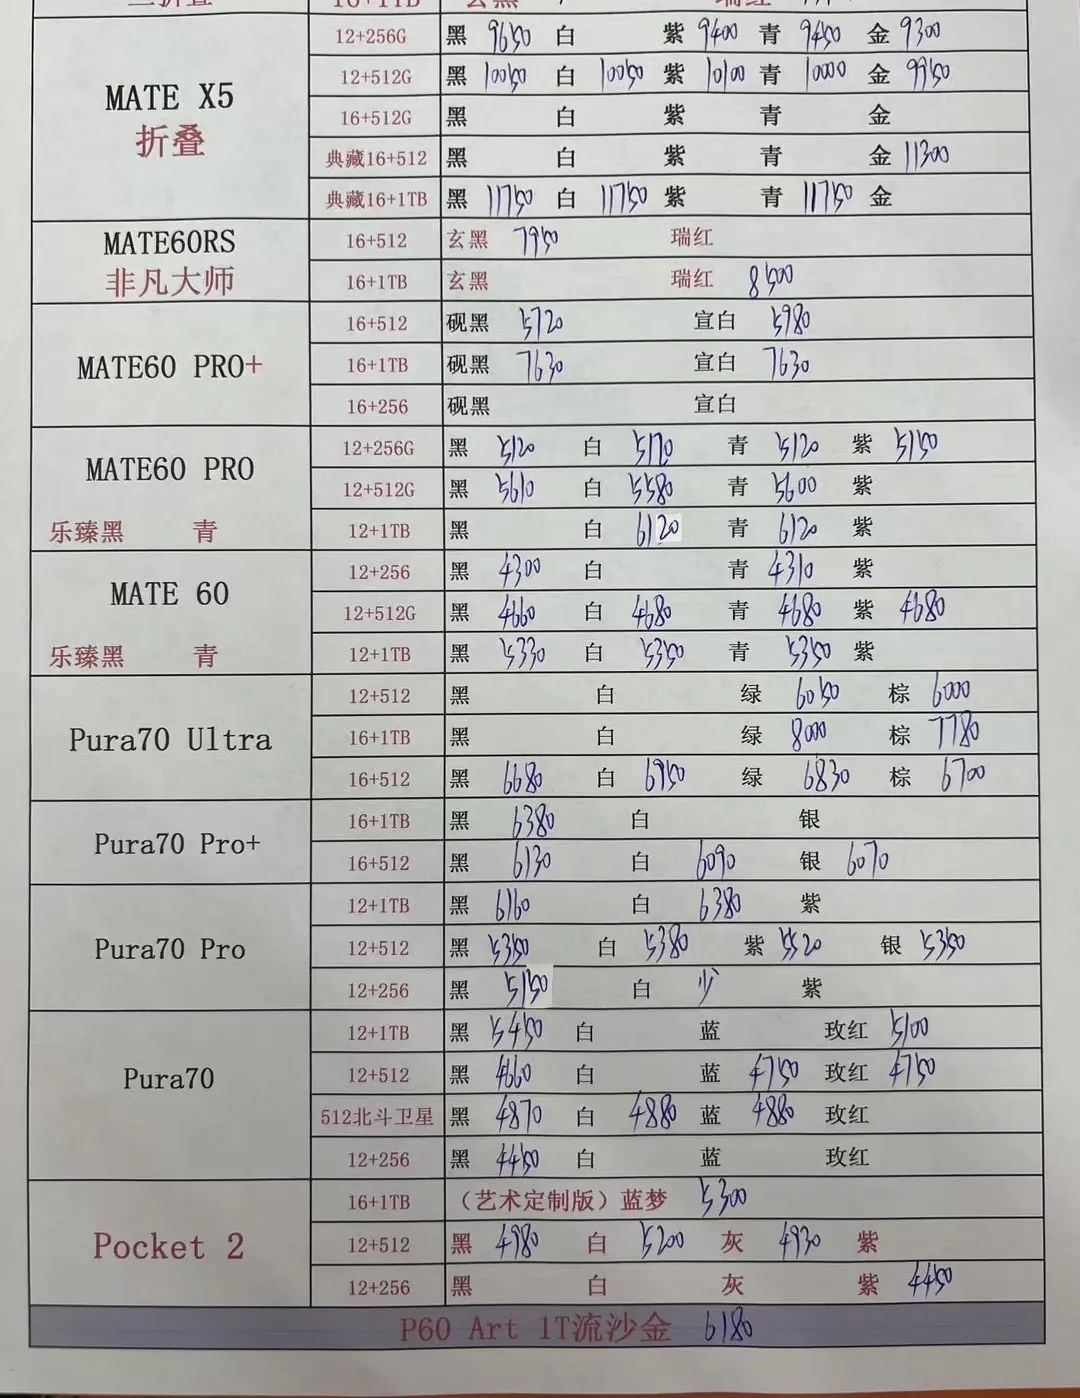 三折叠 16+1TB 玄黑 瑞红
MATE X5
折叠
12+256G 黑 9650 白 紫 9400 青 9450 金 9300
12+512G 黑 10050 白 10050 紫 10100 青 10000 金 9950
16+512G 黑 白 紫 青 金
典藏16+512 黑 白 紫 青 金 11300
典藏16+1TB 黑 11750 白 11750 紫 青 11750 金
MATE60RS
非凡大师
16+512 玄黑 7950 瑞红
16+1TB 玄黑 瑞红 8500
MATE60 PRO+
16+512 砚黑 5720 宣白 5980
16+1TB 砚黑 7630 宣白 7630
16+256 砚黑 宣白
MATE60 PRO
乐臻黑 青
12+256G 黑 5120 白 5170 青 5120 紫 5150
12+512G 黑 5610 白 5580 青 5600 紫
12+1TB 黑 白 6120 青 6120 紫
MATE 60
乐臻黑 青
12+256 黑 4300 白 青 4310 紫
12+512G 黑 4660 白 4680 青 4680 紫 4680
12+1TB 黑 5330 白 5350 青 5350 紫
Pura70 Ultra
12+512 黑 白 绿 6050 棕 6000
16+1TB 黑 白 绿 8000 棕 7780
16+512 黑 6680 白 6950 绿 6830 棕 6700
Pura70 Pro+
16+1TB 黑 6380 白 银
16+512 黑 6130 白 6090 银 6070
Pura70 Pro
12+1TB 黑 6160 白 6380 紫
12+512 黑 5350 白 5380 紫 5520 银 5350
12+256 黑 5150 白 少 紫
Pura70
12+1TB 黑 5450 白 蓝 玫红 5100
12+512 黑 4660 白 蓝 4750 玫红 4750
512北斗卫星 黑 4870 白 4880 蓝 4880 玫红
12+256 黑 4450 白 蓝 玫红
Pocket 2
16+1TB （艺术定制版）蓝梦 5300
12+512 黑 4980 白 5200 灰 4930 紫
12+256 黑 白 灰 紫 4450
P60 Art 1T流沙金 6180